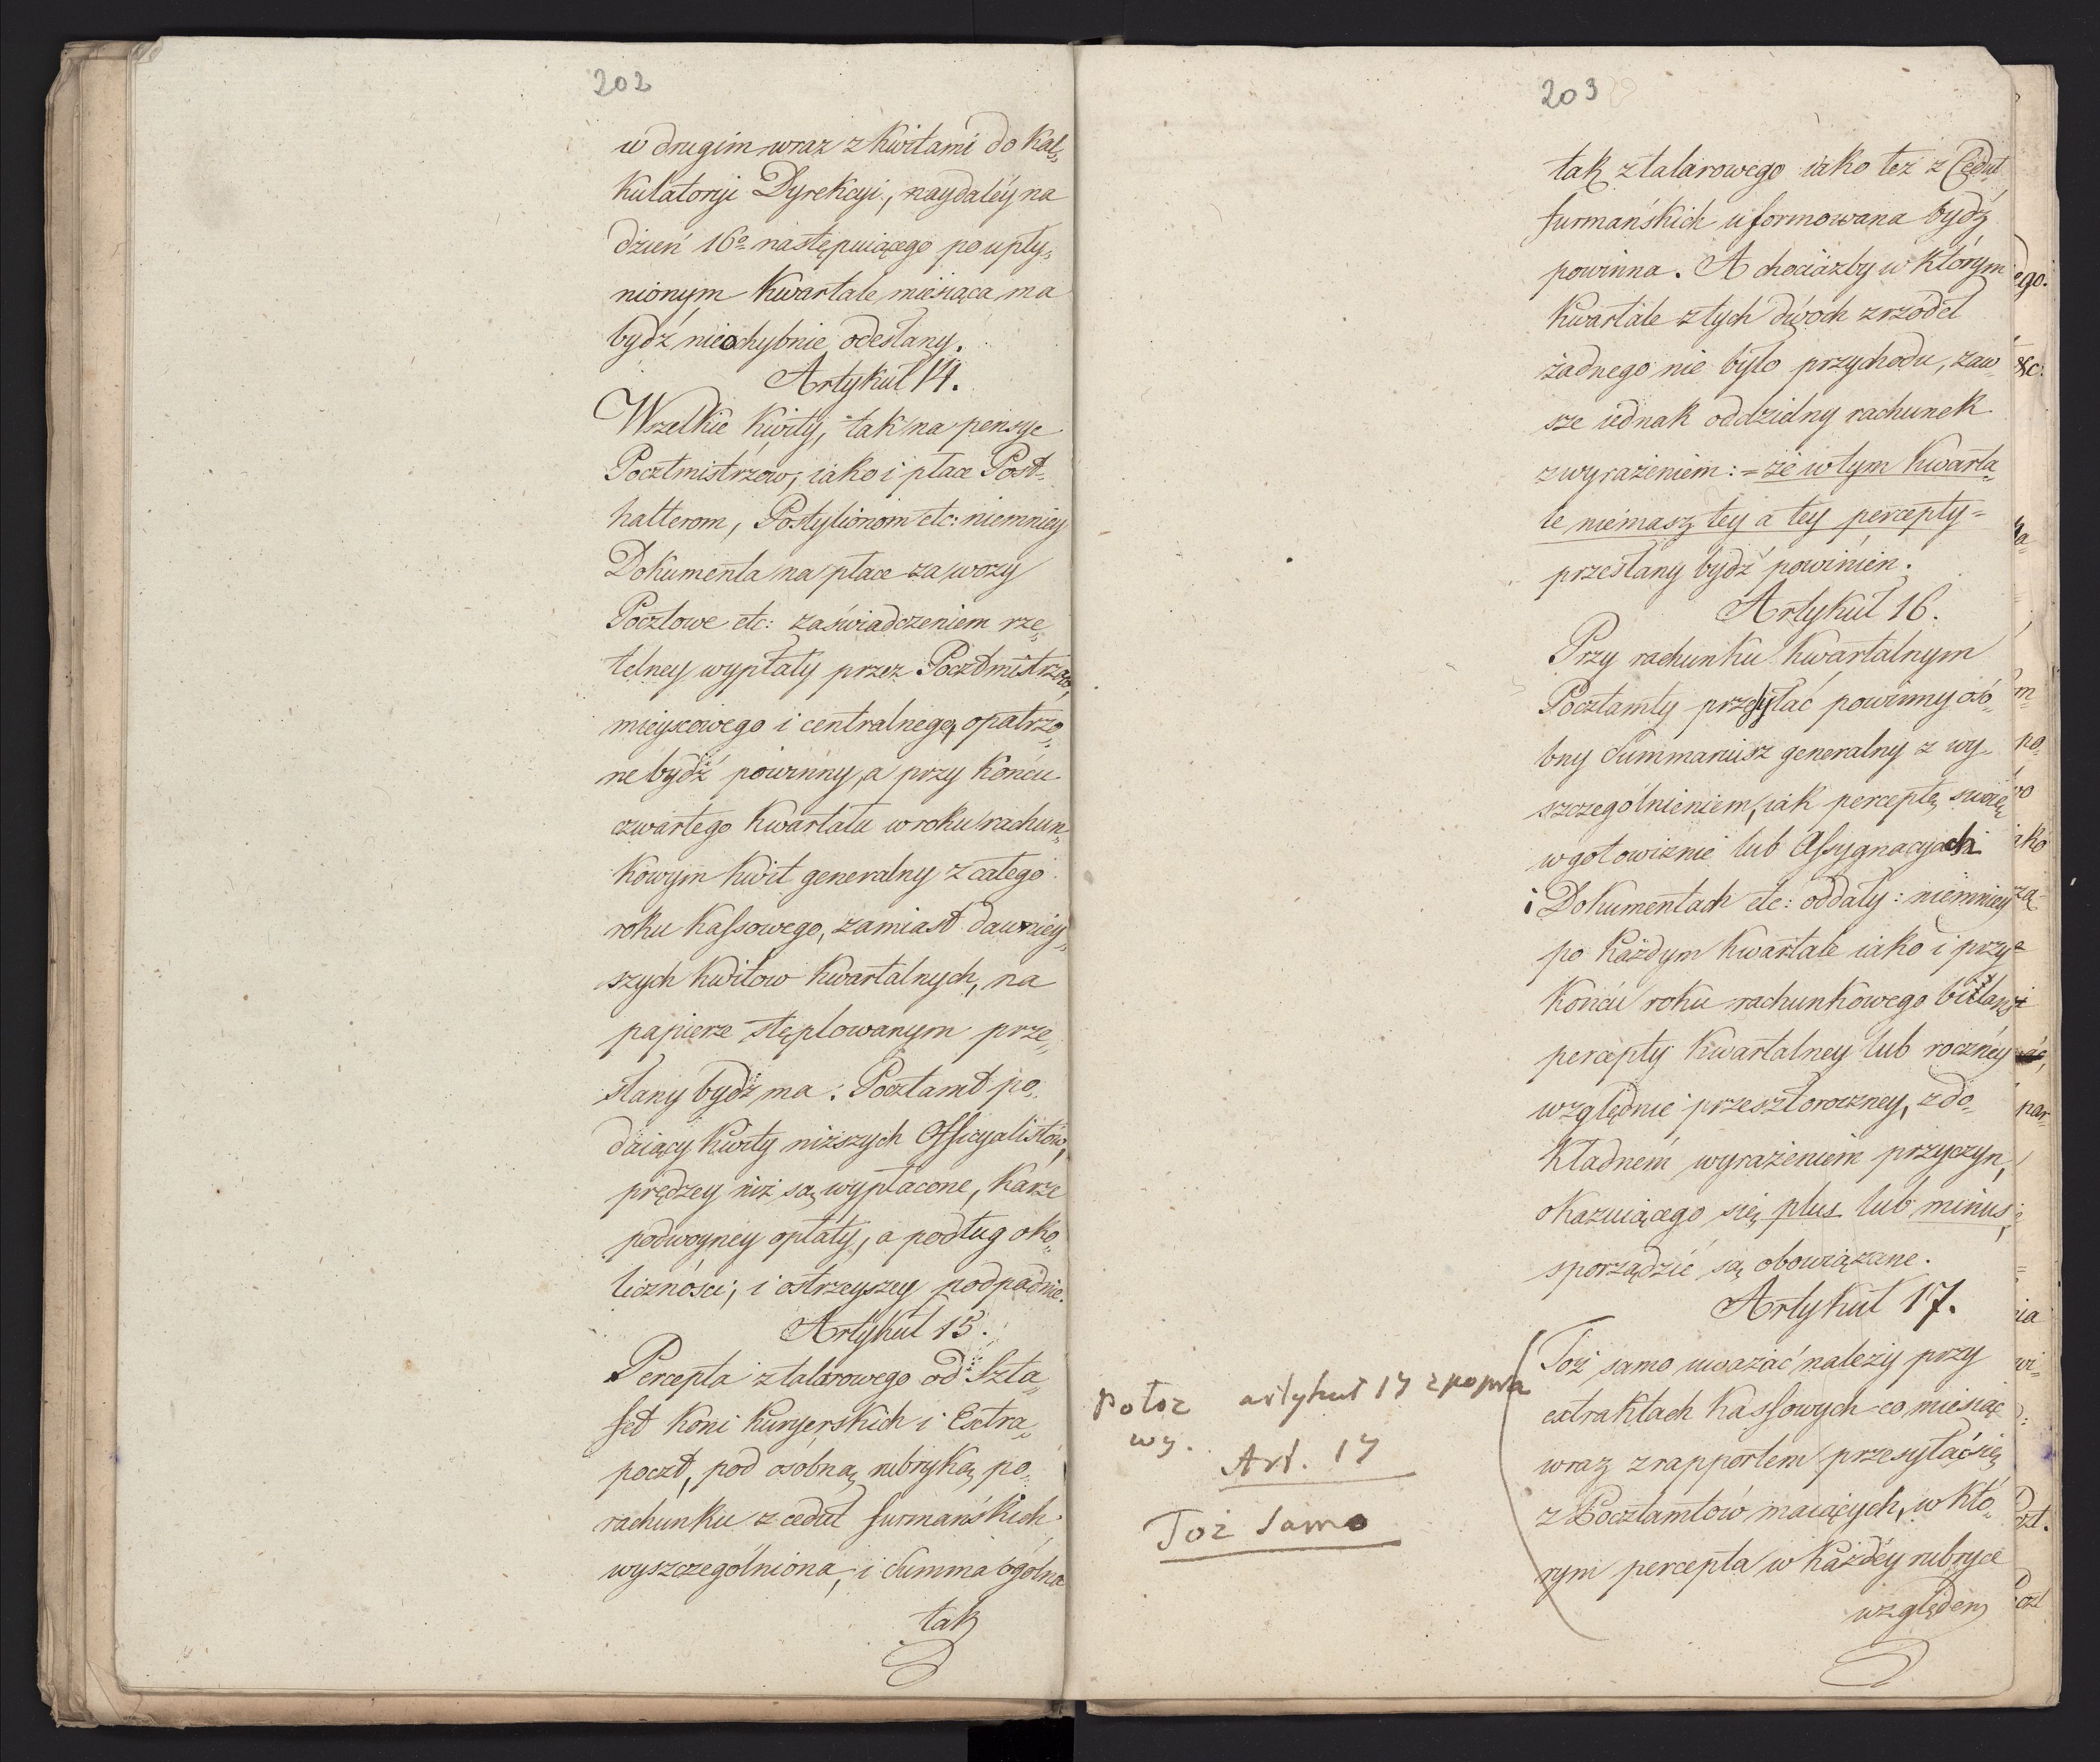 202
w drugim wraz z Kwitami do Kal„
kulatoryi Dyrekcyi, naydaléy na
dzień 16º następuiącego po upły„
nionym Kwartale miesiąca ma
bydź nieochybnie odesłany.
Artykuł 14.
Wszelkie Kwity, tak na pensye
Pocztmistrzow, iako i płace Post„
halterom, Postylionom etc: niemniey
Dokumenta na płace za wozy
Pocztowe etc: zaświadczeniem rze„
telney wypłaty przez Pocztmistrzow,
mieyscowego i centralnego, opatrzo„
ne bydź powinny, a przy Końcu
czwartego Kwartału w roku rachun„
kowym kwit generalny z całego
roku Kassowego, zamiast dawniey„
szych Kwitow Kwartalnych, na
papierze stęplowanym prze„
słany bydź ma: Pocztamt po„
daiący Kwity niższych Officyalistów,
prędzey niż są wypłacone, Karze
podwoyney opłaty, a podług oko„
liczności, i ostrzeyszey podpadnie.
Artykuł 15.
Percepta z talarowego od Szta„
fet Koni Kuryerskich i Extra„
poczt, pod osóbną rubryką po„
rachunku z ceduł furmańskich
wyszczególniona, i Summa ogólna
tak
203
tak z talarowego iako też z Ceduł
furmańskich uformowana bydź
powinna. A chociażby w którym
Kwartale z tych dwóch zrzódeł
żadnego nie było przychodu, zaw„
sze iednak oddzielny rachunek
z wyrażeniem: = że w tym Kwarta„
le niemasz tey a tey percepty =
przesłany bydź powinien.
Artykuł 16.
Przy rachunku Kwartalnym
Pocztamty przesyłać powinny osó„
bny Summariusz generalny z wy„
szczególnieniem, iak perceptę swoię
w gotowiznie lub Assygnacyach
i Dokumentach etc: oddały: niemniey
po Każdym Kwartale iako i przy
Końcu roku rachunkowego bilans
percepty Kwartalney lub roczney
względnie przeszłoroczney, z do„
kładném wyrażeniem przyczyn,
okazuiącego się plus lub minus,
sporządzić są obowiązane.
Artykuł 17.
Toż samo uważać należy przy
extraktach Kassowych co miesiąc
wraz z rapportem przesyłać się
z Pocztamtów maiących, w któ„
rym percepta w Każdéy rubryce
względem
Połoz artykuł 17 z popra
wy.
Art. 17
Toż Samo